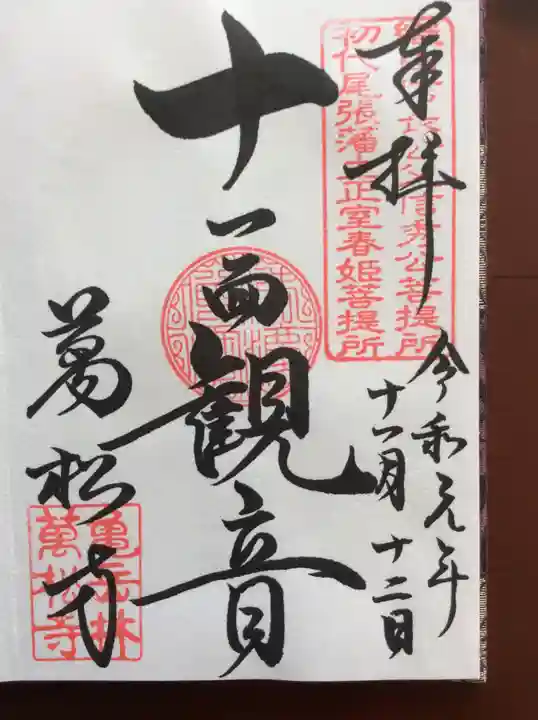 奉拝
令和元年
十一月十二日
初代尾張藩主正室春姫菩提所
十一面観音
萬松寺
亀岳林
萬松寺